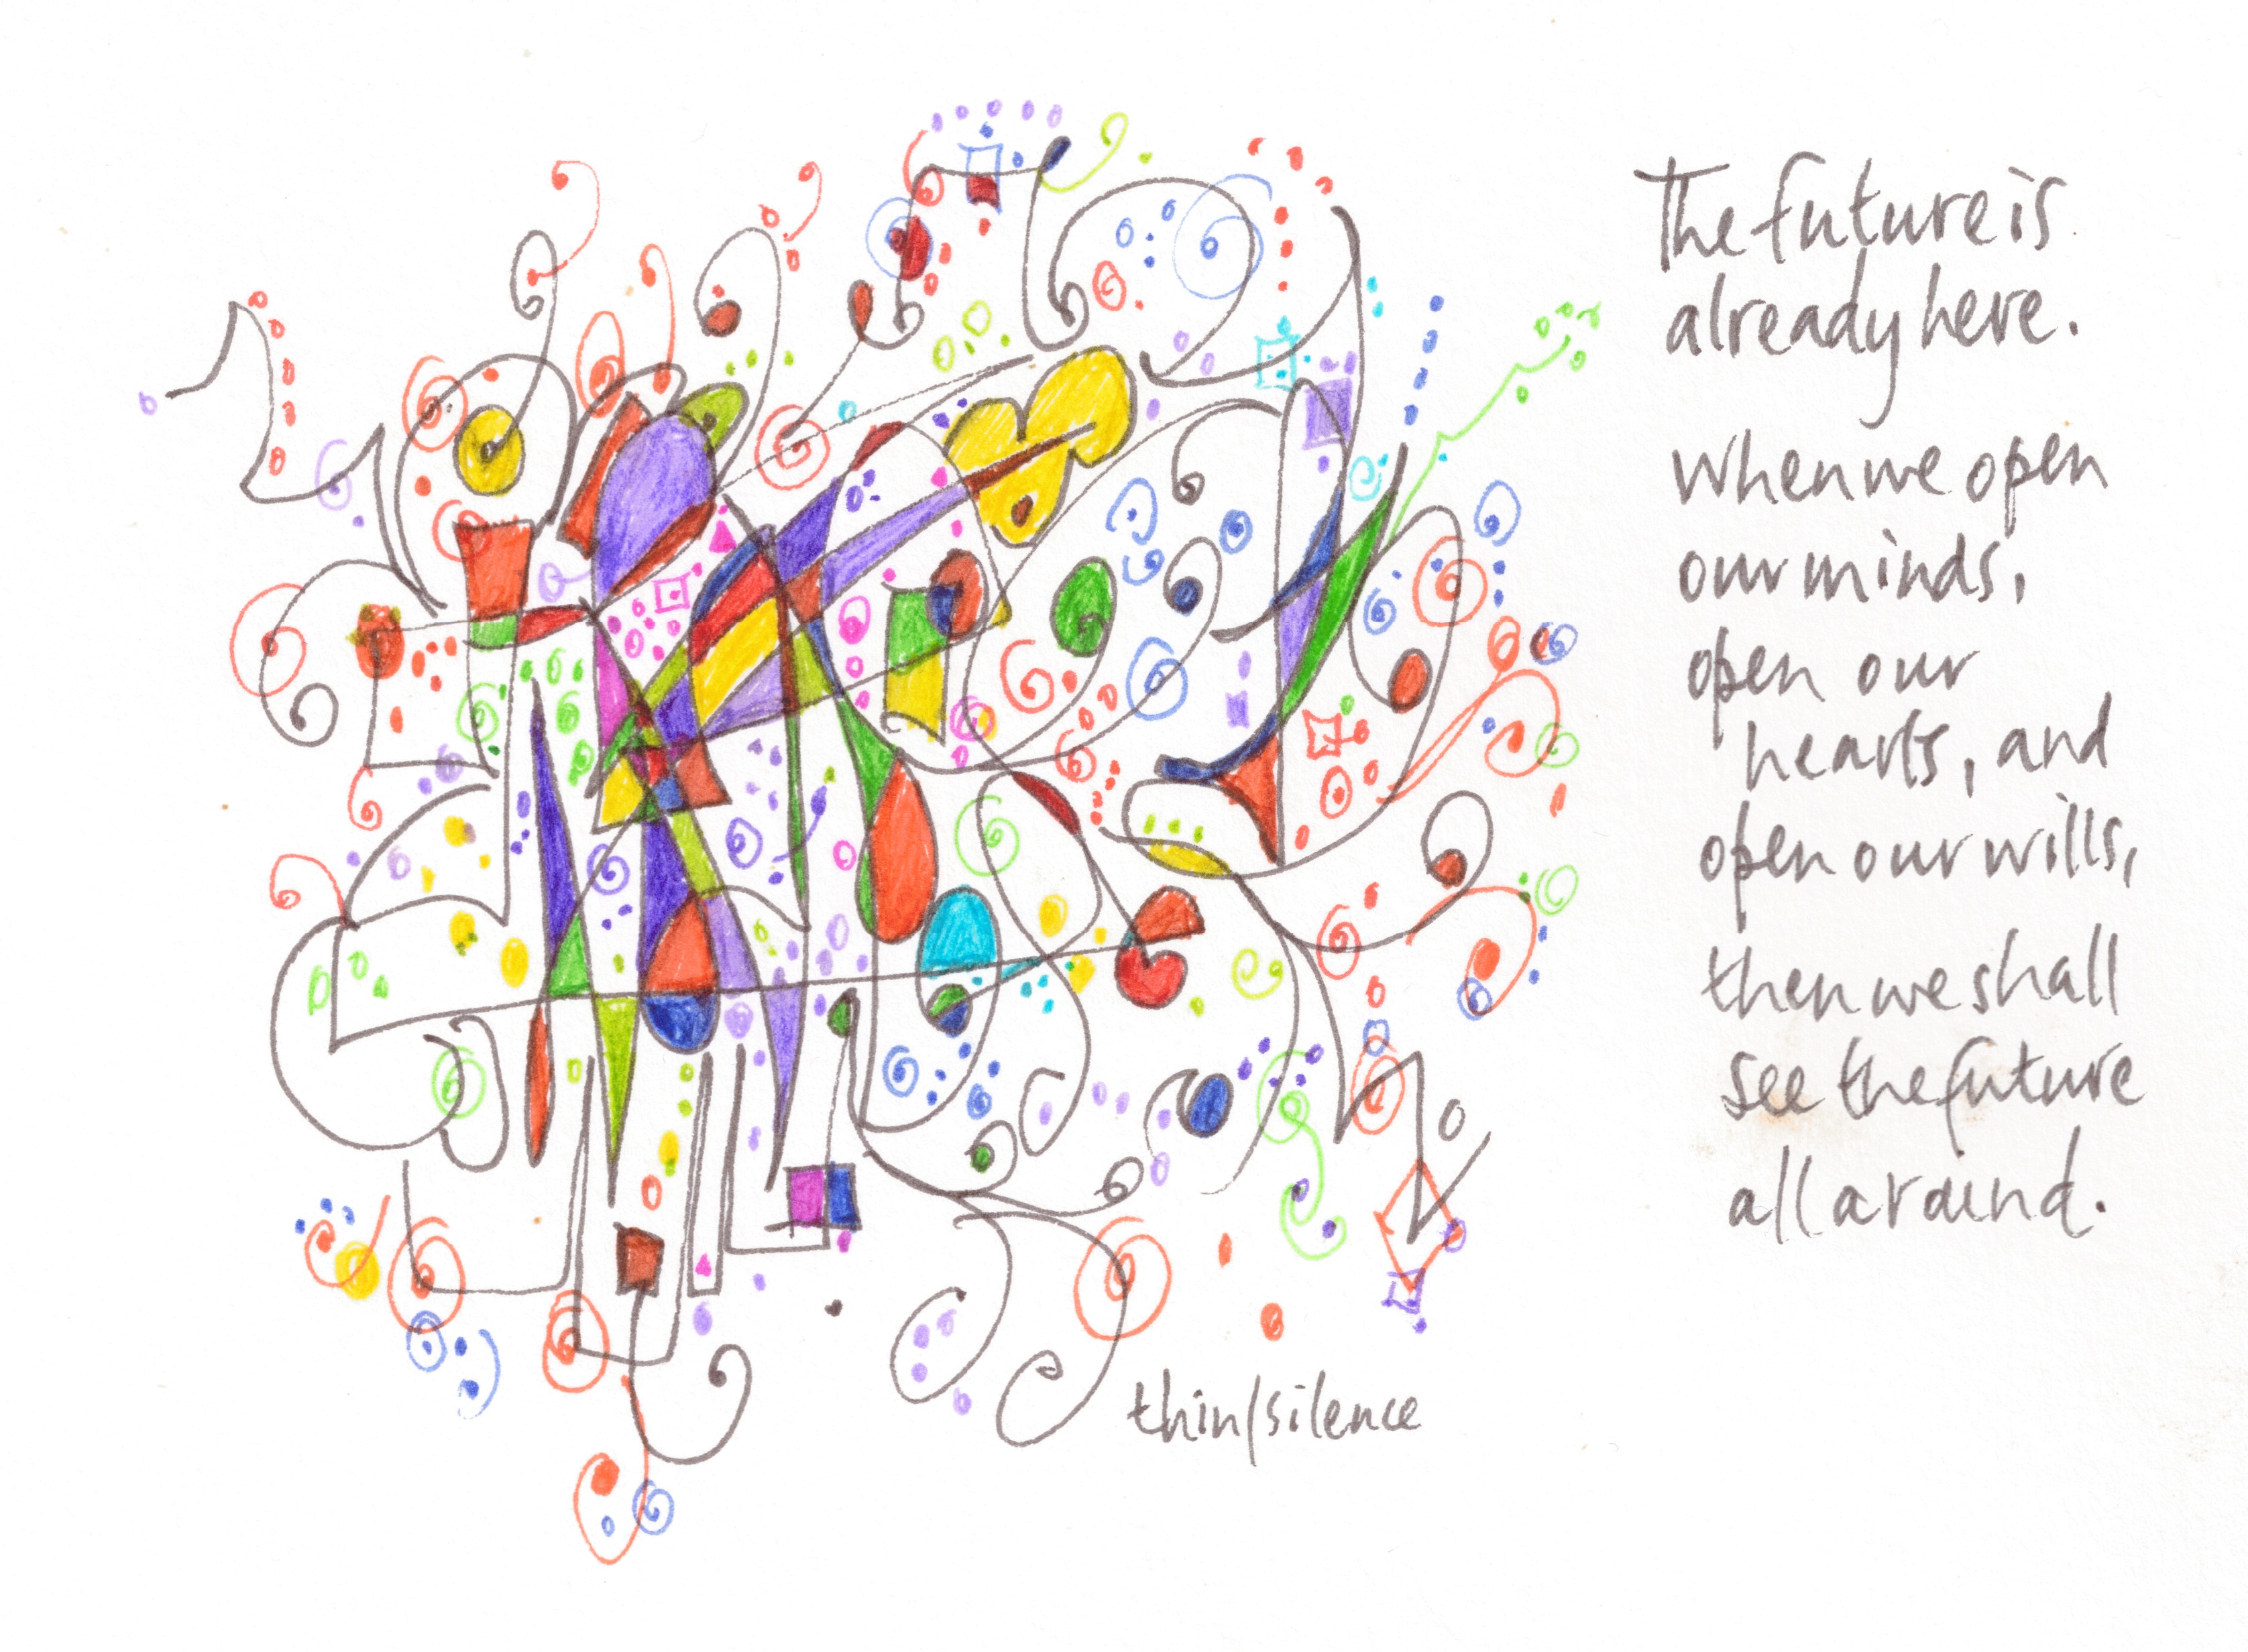 The future is
already here.
When we open
our minds,
open our
hearts, and
open our wills,
then we shall
see the future
all around.
thin/silence